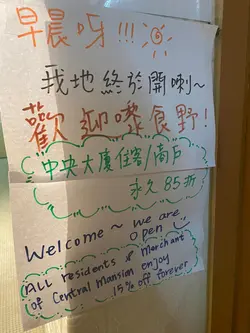 早晨呀!!!
我地終於開喇~
歡迎嚟食野!
中央大廈住客/商戶
永久85折
Welcome~ we are
Open
ALL residents & Merchant
of Central Mansion enjoy
15% off forever